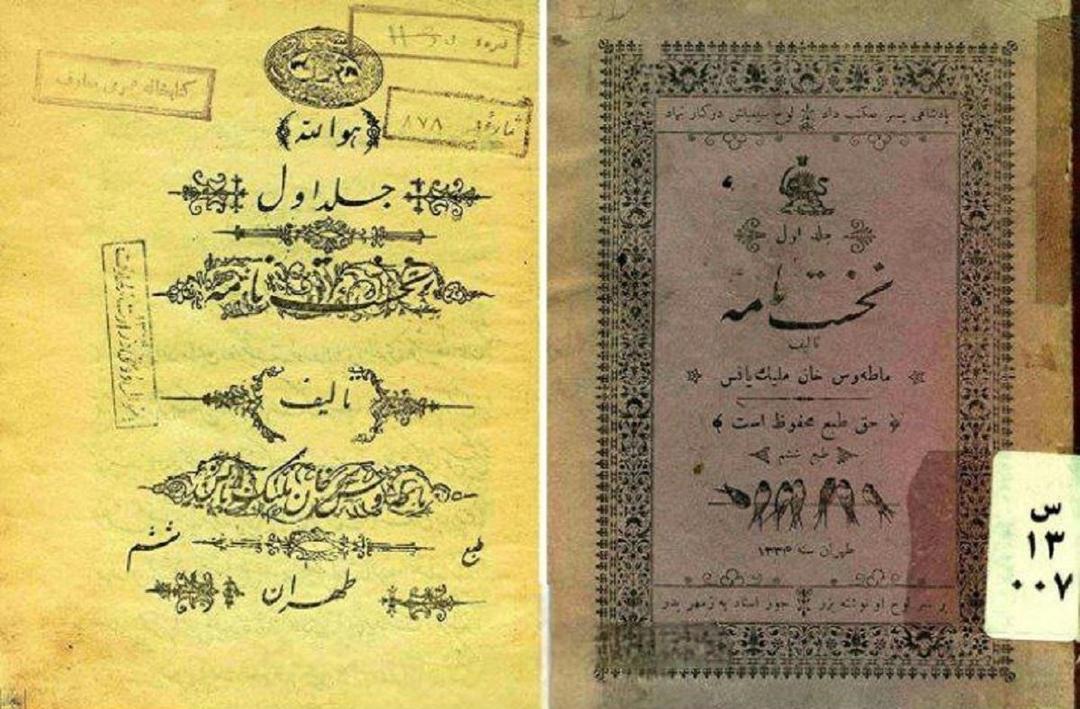 هوالله
جلد اول
نخست نامه
تألیف
ماطه وس خان ملیک یانس
طبع ششم
طهران
نمره
۸۷۸
پادشاهی پسر بمکتب داد لوح سیمیناش در کنار نهاد
جلد اول
نخست نامه
تالیف
ماطه وس خان ملیک یانس
حق طبع محفوظ است
طبع ششم
طهران سنه
بر سر لوح او نوشته بزر جور استاد به ز مهر پدر
س
۱۳
۰۰۷